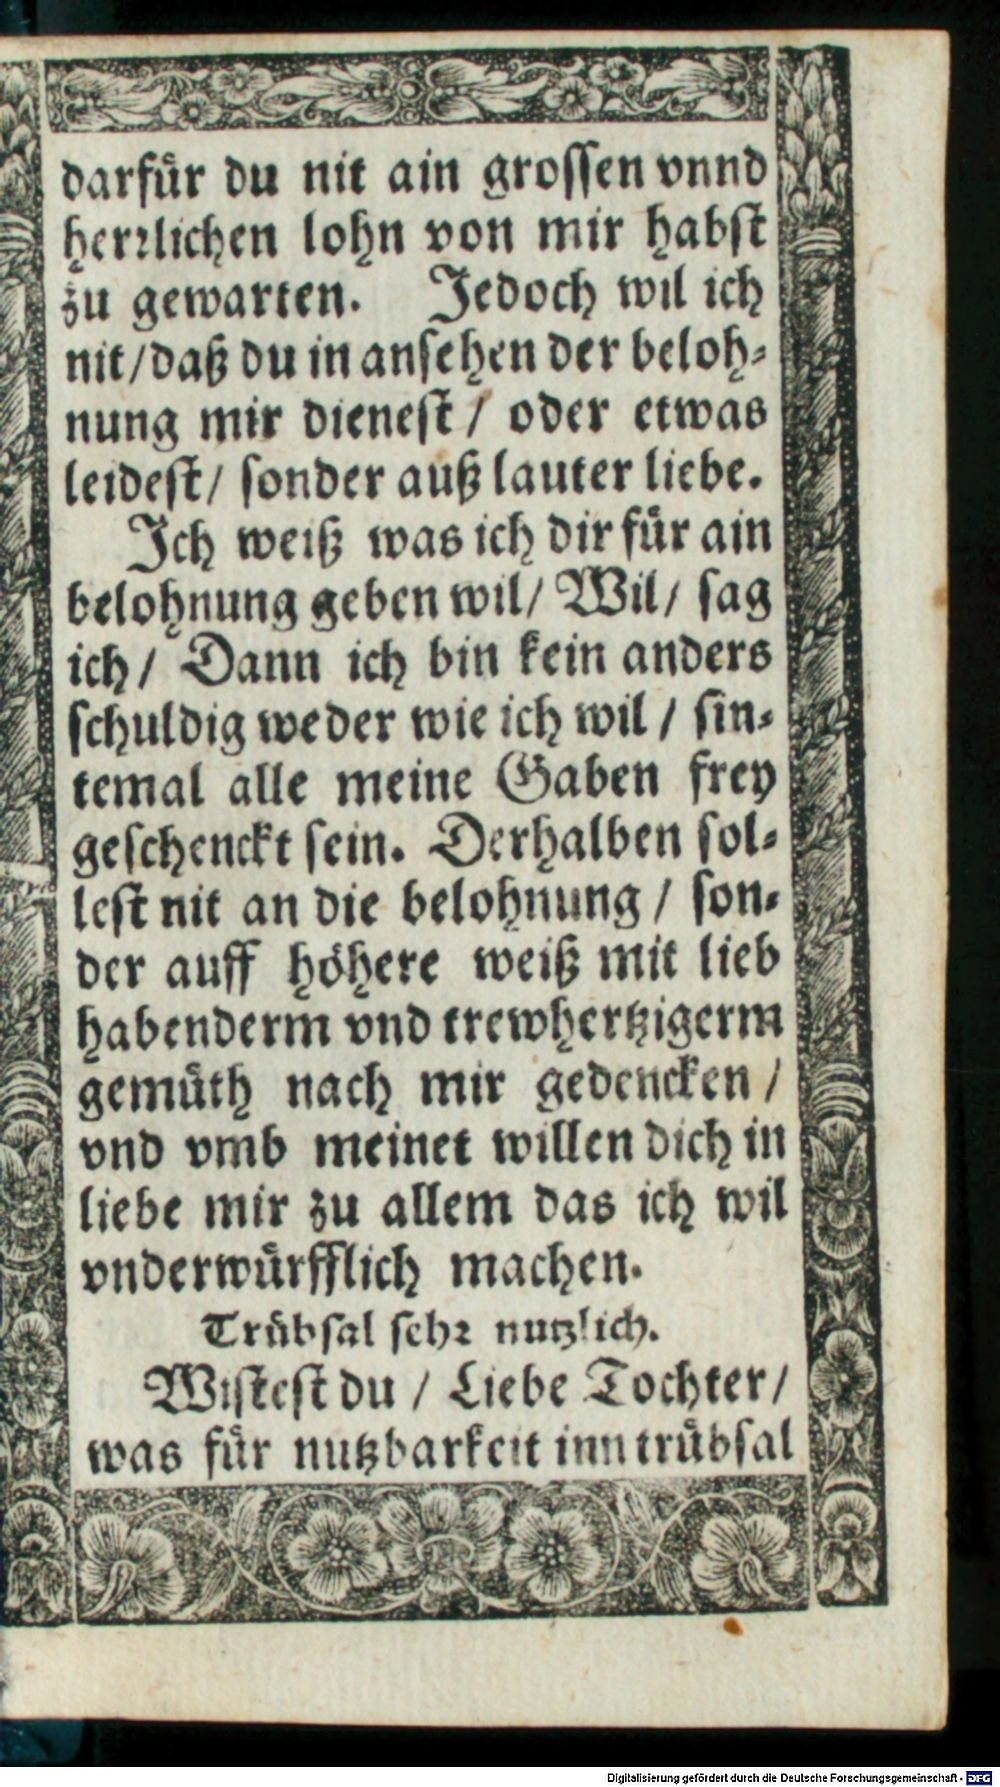 darfür du nit ain grossen vnnd
herrlichen lohn von mir habst
zu gewarten. Jedoch wil ich
nit/daß du in ansehen der beloh-
nung mir dienest/ oder etwas
leidest/ sonder auß lauter liebe.
Ich weiß was ich dir für ain
belohnung geben wil/ Wil/ sag
ich/ Dann ich bin kein anders
schuldig weder wie ich wil/ sin-
temal alle meine Gaben frey
geschenckt sein. Derhalben sol-
lest nit an die belohnung/ son-
der auff höhere weiß mit lieb
habenderm vnd trewhertzigerm
gemüth nach mir gedencken/
vnd vmb meinet willen dich in
liebe mir zu allem das ich wil
vnderwürfflich machen.
Trübsal sehr nutzlich.
Wistest du/ Liebe Tochter/
was für nutzbarkeit inn trübsal
Digitalisierung gefördert durch die Deutsche Forschungsgemeinschaft - DFG